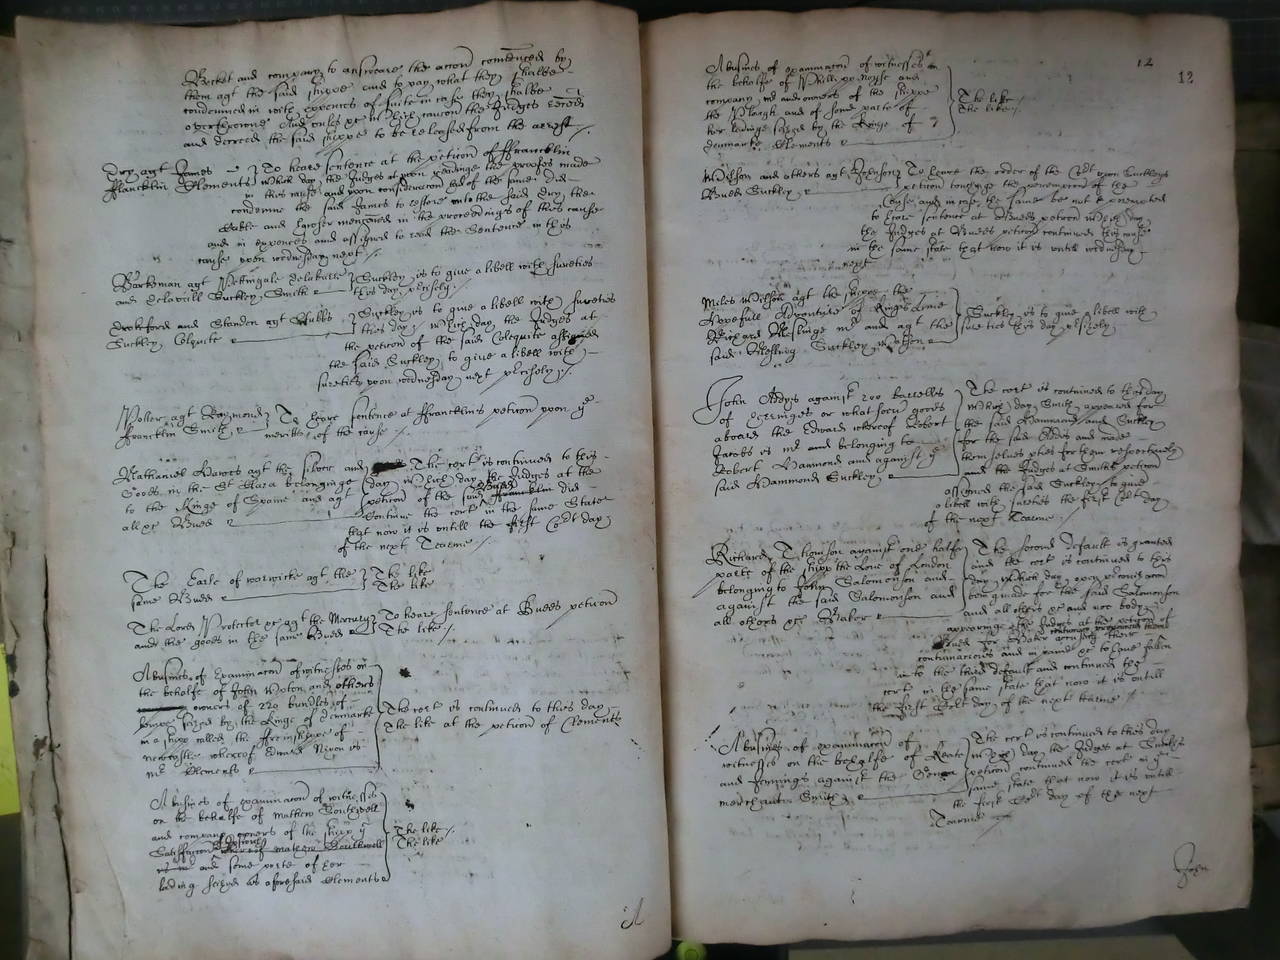 Becket and company to answeare the accon comenced by
them agt the said shippe and to pay what they shalbe
condemned in with expences of suite in case they shalbe
overthrowne And under &c which caucon the Judges
and decreed the said shippe to be released from the arrest
Dox agt James
Francklin Clements
To heare sentence at the peticon of ffrancklin
Which day the Judges at upon readinge the proofes made
in this cause and upon consideracon had of the same did
condemne the said James to restore unto the said Dox the
Cable and mencioned in the proceedings of this cause
and in expences and assigned to read the Sentence in this
cause upon wednesday next
Barkman agt Nightingale delabarre
and Suckley Smith
Suckley is to give a libell with sureties
this day precisely
and Standen agt Stubbs
Suckley Colquite
Suckley is to give a libell with sureties
this day Which day the Judges at
the peticon of the said Colequite assigned
the said Suckley to give a libell with
sureties upon wednesday next precisely
agt Raymond
ffrancklin Smith
To heare sentence at ffrancklins peticon upon ye
meritts of the cause
Nathaniel Dawes agt the silver and
Goods in the St Clara belonginge
to the Kinge of Spaine and agt
all &c Budd
The cort is continued to this
day Which day the Judges at the
peticon of the said Budd did
Continue the cort in the same State
that now it is untill the first Cort day
of the next Tearme
The Earle of warwicke agt the
same Budd
The like
The like
The Lord Protector &c agt the Mercury
and the goods in the same Budd
To heare sentence at Budds peticon
The like
A busines of Examinacon of witnesses on
the behalfe of John Woton and others
owners of 220 bundles of
hempe seized by the Kinge of denmarke
in a shipp called the ffreindshipp of
newcastle whereof Edward Nixon is
mr Clements
The cort is continued to this day
The like at the peticon of Clements
A busines of examinacon of witnesses
on the behalfe of Mathew Southwell
and company owners of the shipp ye
Satisfaccon
and some parte of her
lading seized as aforesaid Clements
The like
The like
A
12
12
A busines of examinacon of witnesses on
the behalfe of Phillipp and
company mr and owners of the shippe
the Plough and of some parte of
her ladinge seized by the Kinge of
denmarke Clements
The like
The like
Wilson and others agt Johnson
Budd Suckley
To heare the order of the Cort upon Suckleys
peticon touchinge the peremcon of the
Cause and in case the same be not perempted
to heare sentence at Budds peticon Which day
the Judges at Budds peticon continued this cause
in the same state that now it is untill wednesday
next
Miles Wilson agt the shippe the
Hopefull Adventure of Kings Linne
Richard Meslinge mr and agt the
said Meslinge Suckley Watson
Suckley is to give libell with
sureties this day precisely
John Addys against 200 barrells
of herringes or what soever goods
aboard the Edward whereof Robert
Jacobs is mr and belonging to
Robert Hammond and against ye
said Hammond Suckley
The cort is continued to this day
Which day Smith appeared for
the said Hammond and Suckley
for the said Addis and made
themselves pties for them respectively
and the Judges at Smiths peticon
assigned the said Suckley to give
a libell with sureties the first Cort day
of the next Tearme
Richard Thomson against one halfe
parte of the shipp the Love of London
belonging to John Salomonson and
against the said Salomonson and
all others &c Baker
The second default is granted
and the cort is continued to this
day Which day
being made for the said Salomonson
and all others &c and noe body
appearinge the Judges at the peticon of
Baker accusing their
contumacies and in paine &c to have fallen
into the third default and continued the
cort in the same state that now it is untill
the first Cort day of the next tearme
A busines of examinacon of
witnesses on the behalfe of Keate
and Jennings against the
merchants Smith
The cort is continued to this day
Which day the Judges at Smiths
peticon continued the cort in ye
same state that now it is untill
the first Cort day of the next
Tearme
John